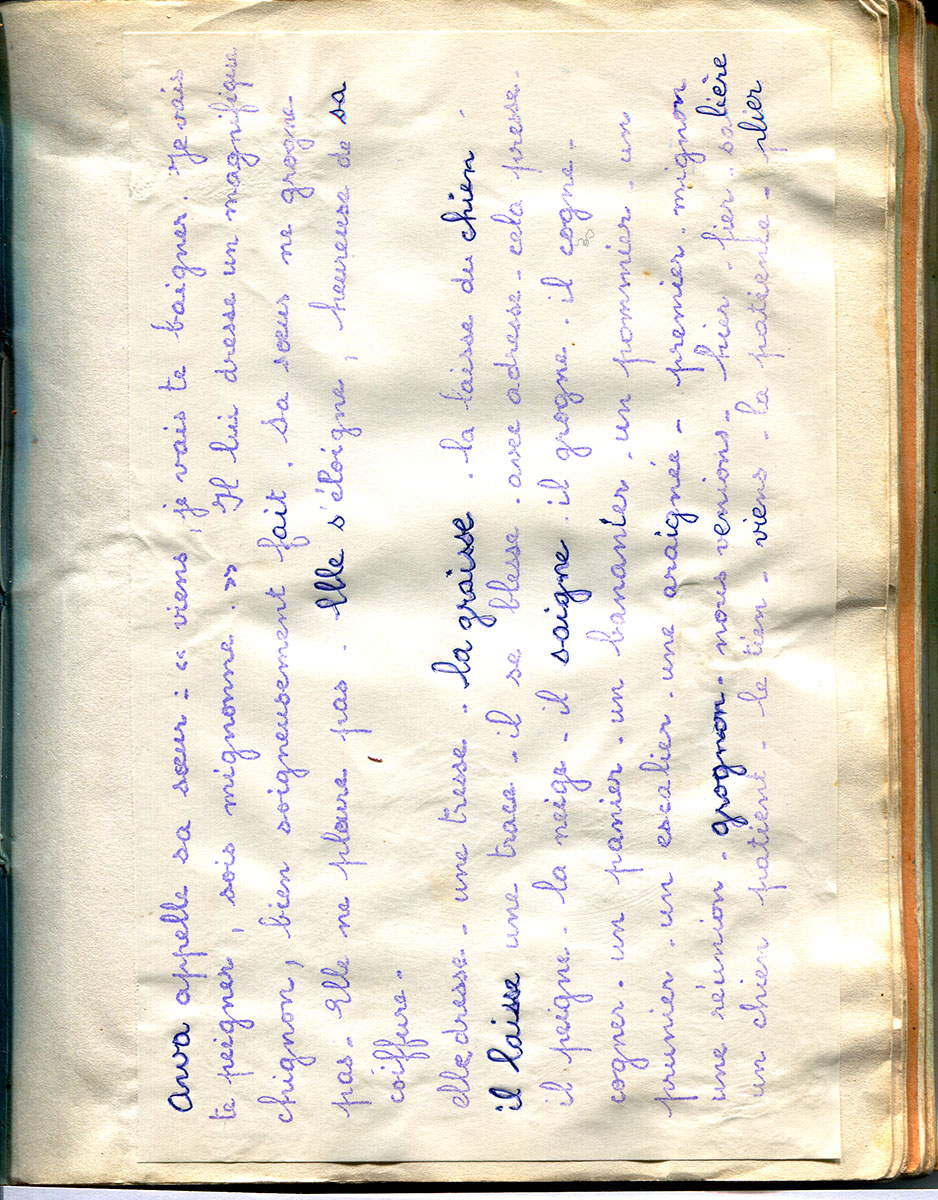 Awa appelle sa sœur : « viens, je vais te baigner. Je vais
te peigner, sois mignonne. » Il lui dresse un magnifique
chignon, bien soigneusement fait. sa sœur ne grogne
pas. Elle ne pleure pas. Elle s'éloigne, heureuse de sa
coiffure.
elle dresse. une tresse. la graisse. la laisse du chien.
il laisse une trace. il se blesse. avec adresse. cela presse.
il peigne. la neige. il saigne. il grogne. il cogne.
cogner. un panier. un bananier. un pommier. un
prunier. un escalier. une araignée. premier. mignon
une réunion. grognon. nous venions. hier. fier. salière
un chien patient. le tien. viens. la patiente. plier